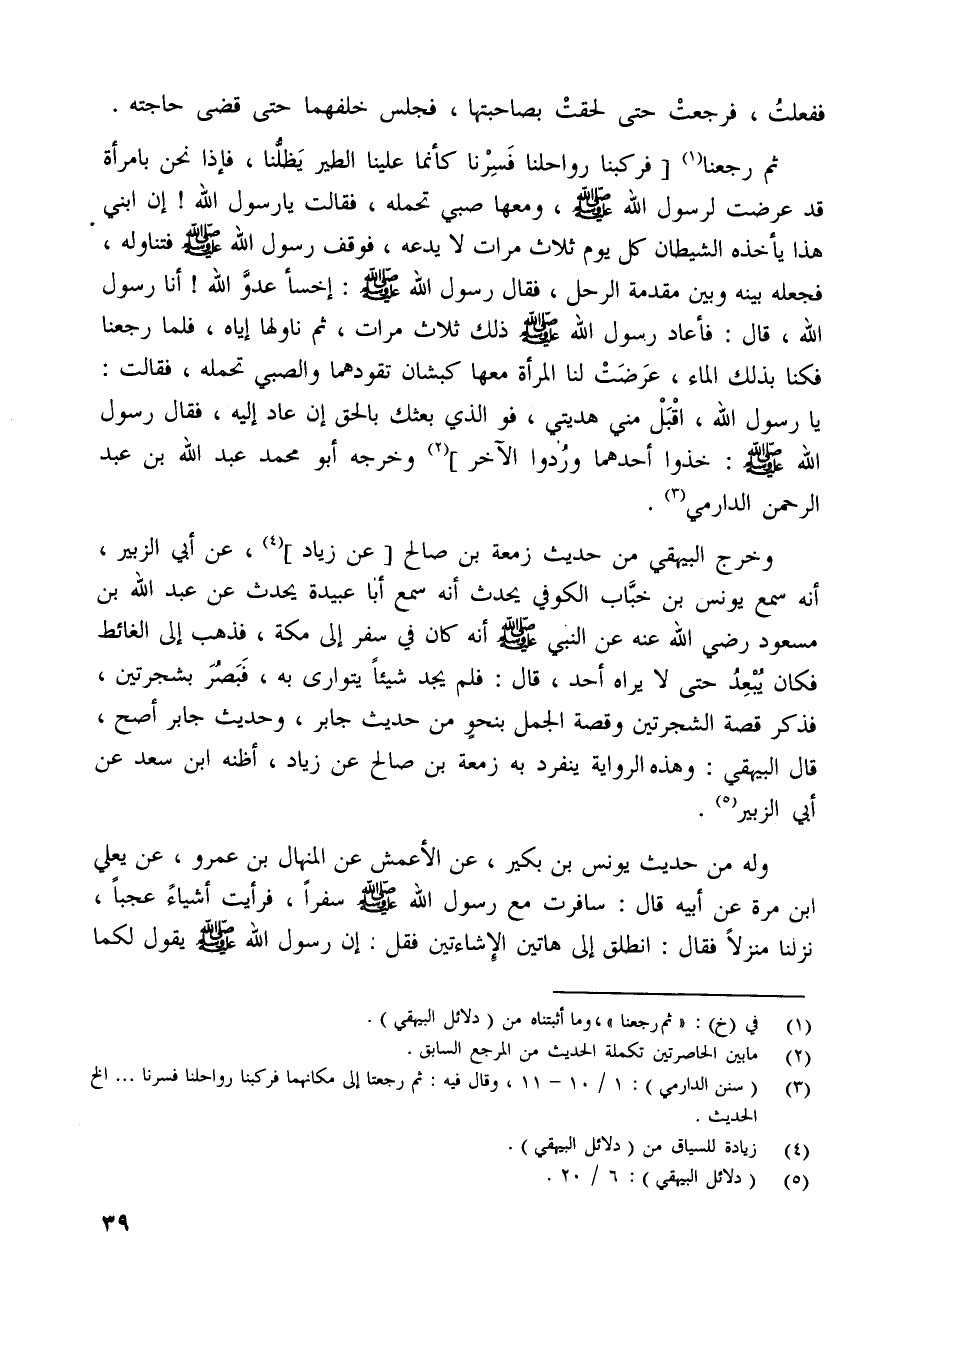 ففعلتُ ، فرجعتْ حتى لحقتْ بصاحبتها ، فجلس خلفهما حتى قضى حاجته .
ثم رجعنا(١) [ فركبنا رواحلنا فَسِرْنا كأنما علينا الطير يَظلُّنا ، فإذا نحن بامرأة
قد عرضت لرسول الله ﷺ ، ومعها صبي تحمله ، فقالت يارسول الله ! إن ابني
هذا يأخذه الشيطان كل يوم ثلاث مرات لا يدعه ، فوقف رسول الله ﷺ فتناوله ،
فجعله بينه وبين مقدمة الرحل ، فقال رسول الله ﷺ : إخسأ عدوَّ الله ! أنا رسول
الله ، قال : فأعاد رسول الله ﷺ ذلك ثلاث مرات ، ثم ناولها إياه ، فلما رجعنا
فكنا بذلك الماء ، عرَضَتْ لنا المرأة معها كبشان تقودهما والصبي تحمله ، فقالت :
يا رسول الله ، اقْبَلْ مني هديتي ، فو الذي بعثك بالحق إن عاد إليه ، فقال رسول
الله ﷺ : خذوا أحدهما ورُدوا الآخر ](٢) وخرجه أبو محمد عبد الله بن عبد
الرحمن الدارمي(٣) .
وخرج البيهقي من حديث زمعة بن صالح [ عن زياد ](٤) ، عن أبي الزبير ،
أنه سمع يونس بن خبَّاب الكوفي يحدث أنه سمع أبا عبيدة يحدث عن عبد الله بن
مسعود رضي الله عنه عن النبي ﷺ أنه كان في سفر إلى مكة ، فذهب إلى الغائط
فكان يُبْعِدُ حتى لا يراه أحد ، قال : فلم يجد شيئاً يتوارى به ، فَبَصُرَ بشجرتين ،
فذكر قصة الشجرتين وقصة الجمل بنحوٍ من حديث جابر ، وحديث جابر أصح ،
قال البيهقي : وهذه الرواية ينفرد به زمعة بن صالح عن زياد ، أظنه ابن سعد عن
أبي الزبير(٥) .
وله من حديث يونس بن بكير ، عن الأعمش عن المنهال بن عمرو ، عن يعلي
ابن مرة عن أبيه قال : سافرت مع رسول الله ﷺ سفراً ، فرأيت أشياءً عجباً ،
نزلنا منزلاً فقال : انطلق إلى هاتين الإشاءتين فقل : إن رسول الله ﷺ يقول لكما
(١) في (خ) : « ثم رجعنا » ، وما أثبتناه من ( دلائل البيهقي ) .
(٢) مابين الحاصرتين تكملة الحديث من المرجع السابق .
(٣) ( سنن الدارمي ) : ١ / ١٠ – ١١ ، وقال فيه : ثم رجعتا إلى مكانهما فركبنا رواحلنا فسرنا ... الخ
الحديث .
(٤) زيادة للسياق من ( دلائل البيهقي ) .
(٥) ( دلائل البيهقي ) : ٦ / ٢٠ .
٣٩